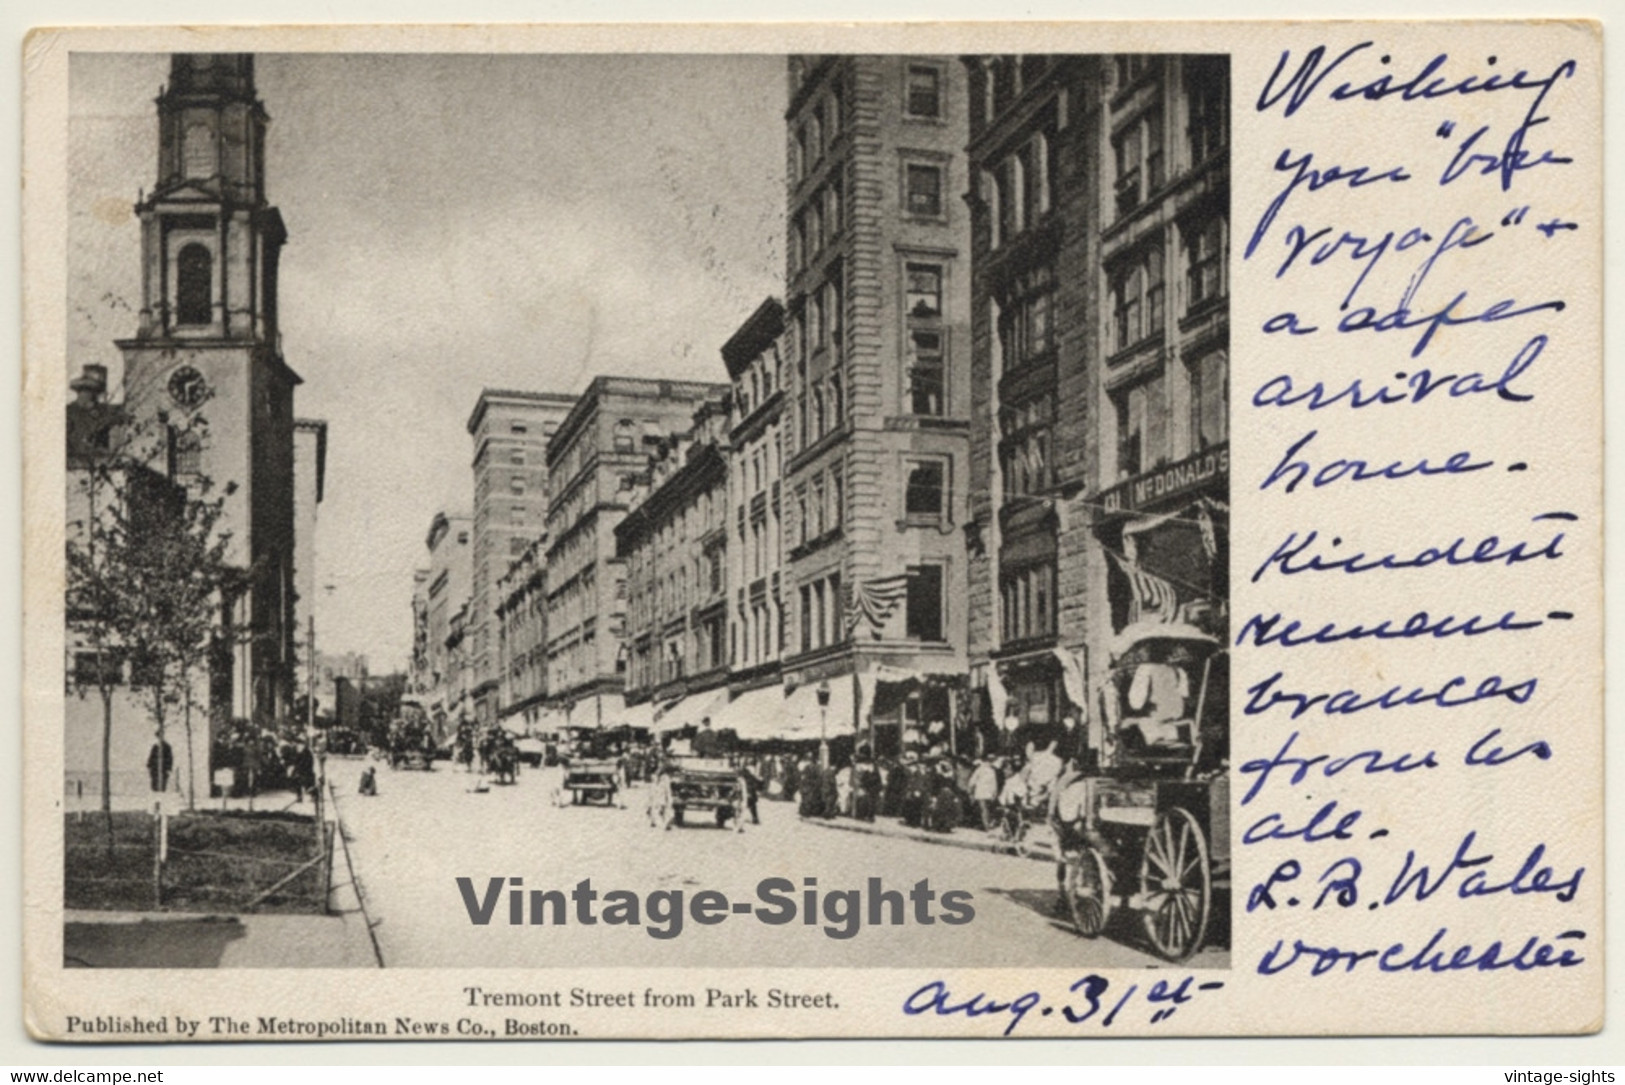 Wishing
you "bon
voyage" +
a safe
arrival
home.
Kindest
remem-
brances
from us
all.
L. B. Wales
Dorchester
Aug. 31st
131 McDONALD'S
Vintage-Sights
Tremont Street from Park Street.
Published by The Metropolitan News Co., Boston.
delcampe.net
vintage-sights